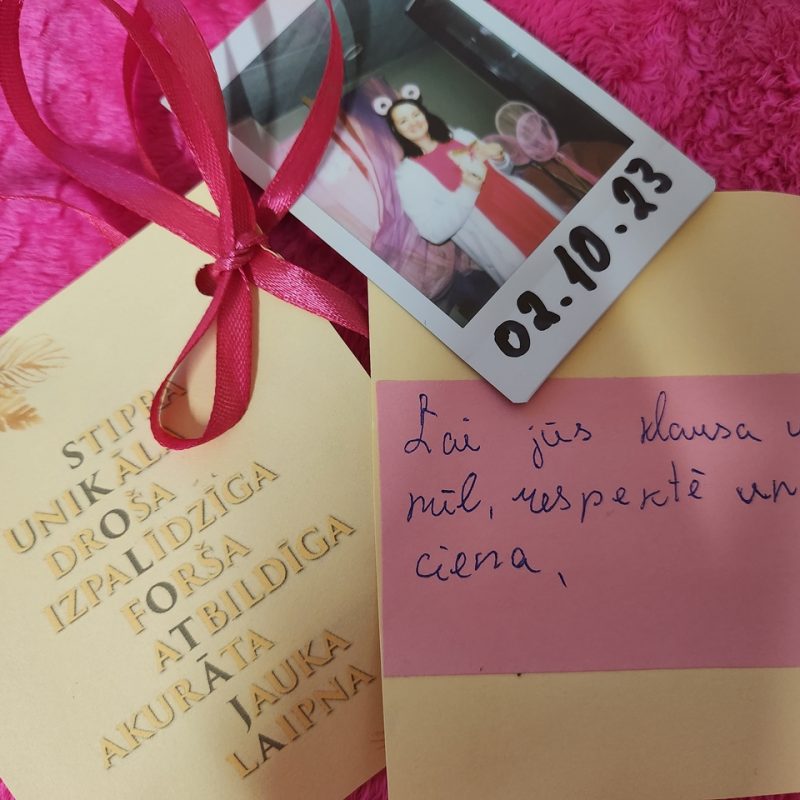 02.10.23
STIPRA
UNIKĀLA
DROŠA
IZPALĪDZĪGA
FORŠA
ATBILDĪGA
AKURĀTA
JAUKA
LAIPNA
Lai jūs klausa u
mīl, respektē un
ciena,